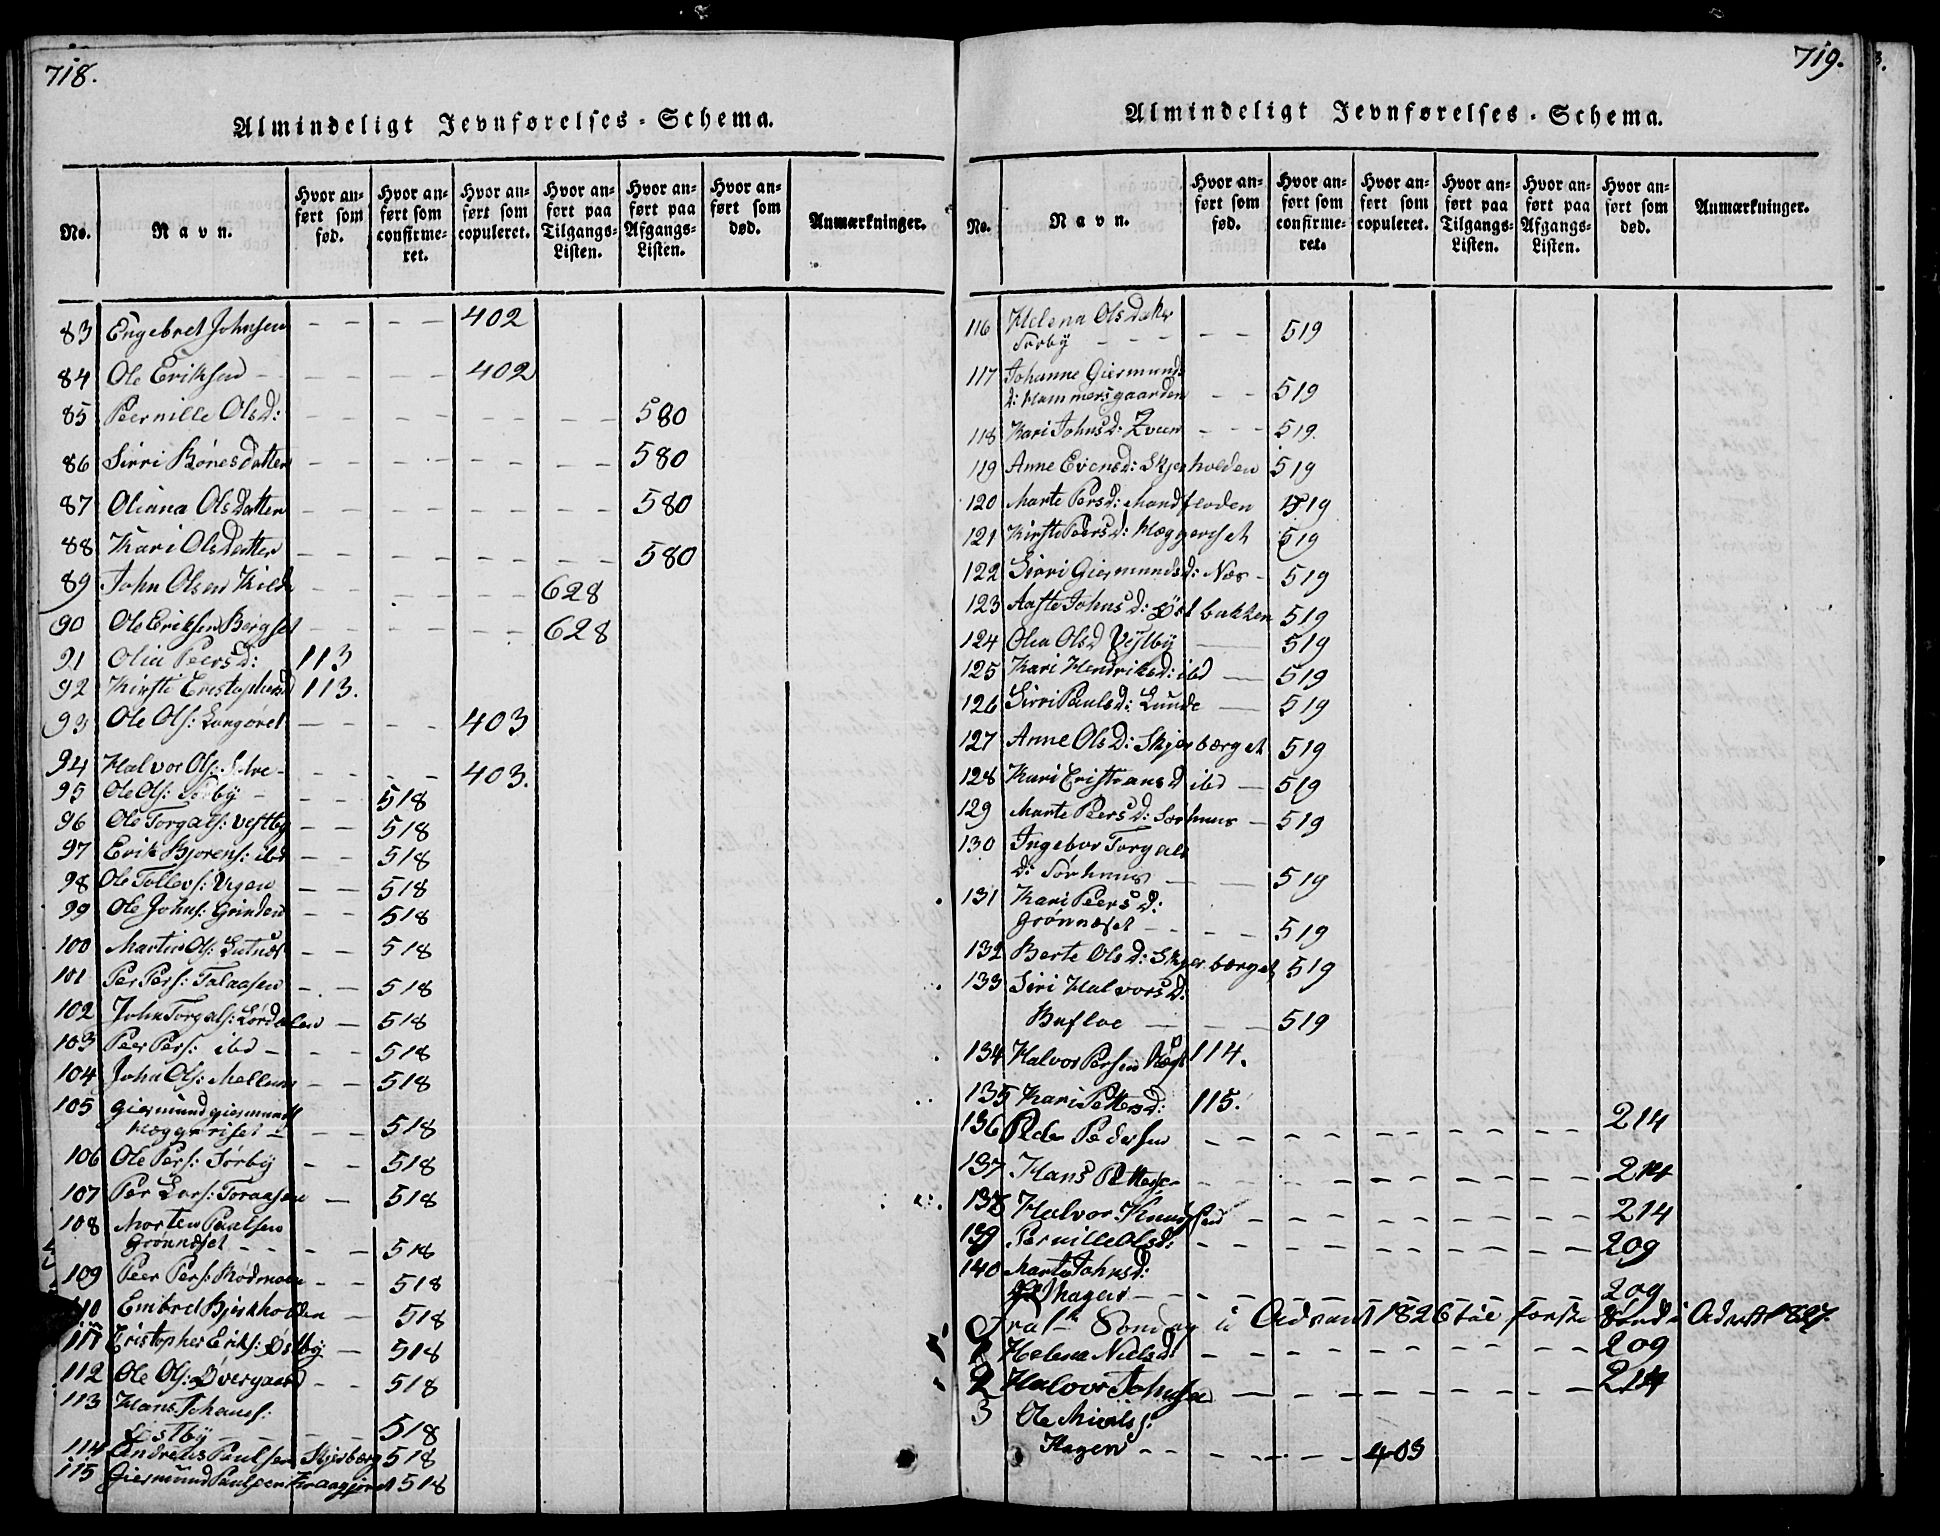 718.
Almindeligt Jevnførelses-Schema.
No. Navn. Hvor anført som fød. Hvor anført som confirmeret. Hvor anført som copuleret. Hvor anført paa Tilgangs-Listen. Hvor anført paa Afgangs-Listen. Hvor anført som død. Anmærkninger.
83 Engebret Johnsen - - - - 402
84 Ole Eriksen - - - - - 402
85 Peernille Olsd: - - - - - - - - 580
86 Sirri Bönesdatter - - - - - - - - 580
87 Oliana Olsdatter - - - - - - - - 580
88 Kari Olsdatter - - - - - - - - 580
89 John Olsen Kilde - - - - - - 628
90 Ole Eriksen Bergset - - - - - - 628
91 Olia Peersd: 113
92 Kirsti Cristophersd 113.
93 Ole Ols: Langøret - - - - 403
94 Halvor Ols: - - - - - 403.
95 Ole Ols: - - - 518
96 Ole Torgals: Vestby - - 518
97 Erik Bjørens: ibd - - 518
98 Ole Tollevs: - - 518
99 Ole Johns: Grinden - - 518
100 Martin Ols: Lutnæs - - 518
101 Per Pers: Talaasen - - 518
102 John Torgals: Lørdalen - 518
103 Peer Pers: ibd - - - 518
104 John Ols: Mellum - - 518
105 Giermund giermunds
Hæggeriset - - - 518
106 Ole Pers: Sörby - - 518
107 Per Lars: Toraasen - 518
108 Morten Paulsen
Grönnæset - - - - 518
109 Peer Pers: Rødmoen - - 518
110 Embret Bjerkholden - 518
111 Cristopher Eriks: Østby - 518
112 Ole Ols: Övergaard - - 518
113 Hans Johans:
Östby - - - - 518
114 Andreas Paulsen Skjærbærg 518
115 Giermund Paulsen Kraagjøret 518
719.
Almindeligt Jevnførelses-Schema.
No. Navn. Hvor anført som fød. Hvor anført som confirmeret. Hvor anført som copuleret. Hvor anført paa Tilgangs-Listen. Hvor anført paa Afgangs-Listen. Hvor anført som død. Anmærkninger.
116 Helena Olsdatter
Sörby - - - - - 519
117 Johanne Giermunds
d: Hammersgaarden - - 519
118 Kari Johnsd: Zveen - - - 519.
119 Anne Evensd: Skjerholden 519
120 Marte Persd: Mandfloden 519
121 Kirste Peersd: Hæggeriset 519
122 Sirri Giermundsd: Næs - 519
123 Aaste Johnsd: Østbakken 519
124 Olea Olsd Vestby - 519
125 Kari Hendriksd: ibd - 519
126 Sirri Paulsd: Lunde - 519
127 Anne Olsd: Skjerbærget 519
128 Kari Cristiansd ibd - 519
129 Marte Peersd: Sørhuus - 519
130 Ingebor Torgals
d: Sörhuus - - 519
131 Kari Peersd:
Grönnæset - - - - 519
132 Berte Olsd: Skjerbærget 519
133 Siri Halvorsd:
Bufloe - - - 519
134 Halvor Persen 114.
135 Kari Pettersd: 115.
136 Peder Pedersen - - - - - - - - - - 214
137 Hans Petterse - - - - - - - - - - 214
138 Halvor Knudsen - - - - - - - - - 214
139 Pernille Olsd: - - - - - - - - - - 209
140 Marte Johnsd:
hagen - - - - - - - - - - 209
Fra 1te Sondag i Advent 1826 til förste Sönd i Advent 1827.
1 Helena Nielsd: - - - - - - - - - - 209
2 Halvor Johnsen - - - - - - - - - 214
3 Ole Niels:
Hagen - - - - - - 403